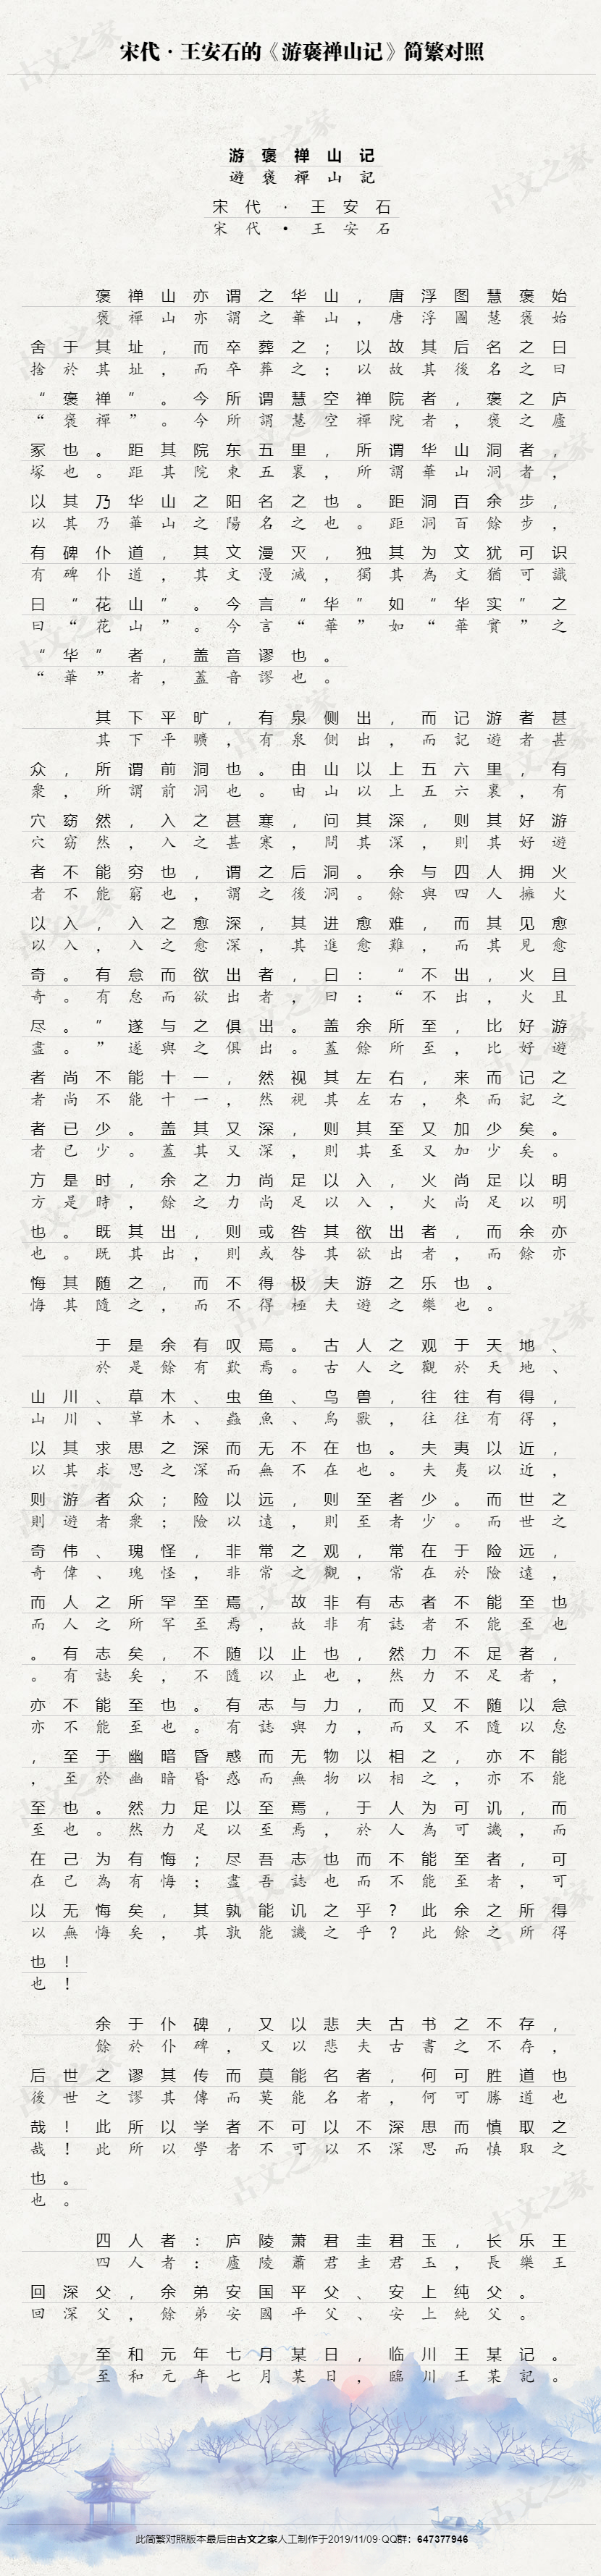 宋代·王安石的《游褒禅山记》简繁对照
游褒禅山记
遊褒禪山記
宋代·王安石
宋代•王安石
褒禅山亦谓之华山，唐浮图慧褒始
褒禪山亦謂之華山，唐浮圖慧褒始
舍于其址，而卒葬之；以故其后名之曰
捨於其址，而卒葬之；以故其後名之曰
“褒禅”。今所谓慧空禅院者，褒之庐
“褒禪”。今所謂慧空禪院者，褒之廬
冢也。距其院东五里，所谓华山洞者，
塚也。距其院東五裏，所謂華山洞者，
以其乃华山之阳名之也。距洞百余步，
以其乃華山之陽名之也。距洞百餘步，
有碑仆道，其文漫灭，独其为文犹可识
有碑仆道，其文漫滅，獨其為文猶可識
曰“花山”。今言“华”如“华实”之
曰“花山”。今言“華”如“華實”之
“华”者，盖音谬也。
“華”者，蓋音謬也。
其下平旷，有泉侧出，而记游者甚
其下平曠，有泉側出，而記遊者甚
众，所谓前洞也。由山以上五六里，有
衆，所謂前洞也。由山以上五六裏，有
穴窈然，入之甚寒，问其深，则其好游
穴窈然，入之甚寒，問其深，則其好遊
者不能穷也，谓之后洞。余与四人拥火
者不能窮也，謂之後洞。餘與四人擁火
以入，入之愈深，其进愈难，而其见愈
以入，入之愈深，其進愈難，而其見愈
奇。有怠而欲出者，曰：“不出，火且
奇。有怠而欲出者，曰：“不出，火且
尽。”遂与之俱出。盖余所至，比好游
盡。”遂與之俱出。蓋餘所至，比好遊
者尚不能十一，然视其左右，来而记之
者尚不能十一，然視其左右，來而記之
者已少。盖其又深，则其至又加少矣。
者已少。蓋其又深，則其至又加少矣。
方是时，余之力尚足以入，火尚足以明
方是時，餘之力尚足以入，火尚足以明
也。既其出，则或咎其欲出者，而余亦
也。既其出，則或咎其欲出者，而餘亦
悔其随之，而不得极夫游之乐也。
悔其隨之，而不得極夫遊之樂也。
于是余有叹焉。古人之观于天地、
於是餘有歎焉。古人之觀於天地、
山川、草木、虫鱼、鸟兽，往往有得，
山川、草木、蟲魚、鳥獸，往往有得，
以其求思之深而无不在也。夫夷以近，
以其求思之深而無不在也。夫夷以近，
则游者众；险以远，则至者少。而世之
則遊者衆；險以遠，則至者少。而世之
奇伟、瑰怪，非常之观，常在于险远，
奇偉、瑰怪，非常之觀，常在於險遠，
而人之所罕至焉，故非有志者不能至也
而人之所罕至焉，故非有誌者不能至也
。有志矣，不随以止也，然力不足者，
。有誌矣，不隨以止也，然力不足者，
亦不能至也。有志与力，而又不随以怠
亦不能至也。有誌與力，而又不隨以怠
，至于幽暗昏惑而无物以相之，亦不能
，至於幽暗昏惑而無物以相之，亦不能
至也。然力足以至焉，于人为可讥，而
至也。然力足以至焉，於人為可譏，而
在己为有悔；尽吾志也而不能至者，可
在己為有悔；盡吾誌也而不能至者，可
以无悔矣，其孰能讥之乎？此余之所得
以無悔矣，其孰能譏之乎？此餘之所得
也！
也！
余于仆碑，又以悲夫古书之不存，
餘於仆碑，又以悲夫古書之不存，
后世之谬其传而莫能名者，何可胜道也
後世之謬其傳而莫能名者，何可勝道也
哉！此所以学者不可以不深思而慎取之
哉！此所以學者不可以不深思而慎取之
也。
也。
四人者：庐陵萧君圭君玉，长乐王
四人者：廬陵蕭君圭君玉，長樂王
回深父，余弟安国平父、安上纯父。
回深父，餘弟安國平父、安上純父。
至和元年七月某日，临川王某记。
至和元年七月某日，臨川王某記。
此简繁对照版本最后由古文之家人工制作于2019/11/09 QQ群：647377946